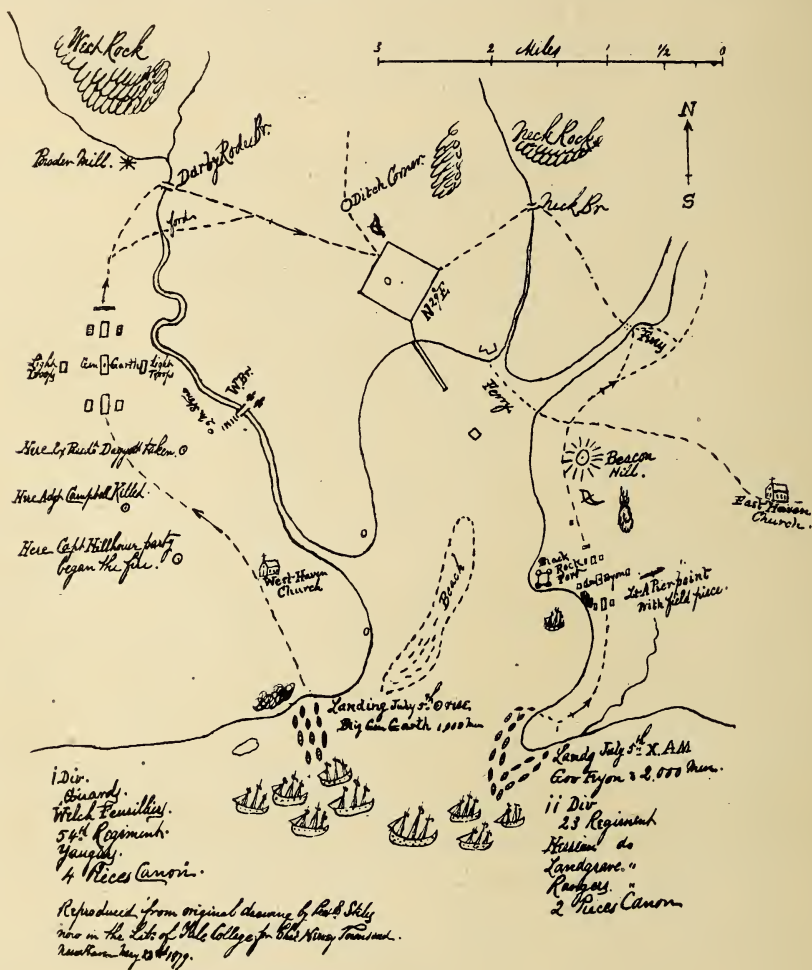 West Rock
3 2 Miles 1 1/2 0
N
S
Powder Mill.
Darby Rode Br.
ford
Ditch Corner.
Neck Rock
Neck Br
N 29° E.
Ferry
Ferry
Light Troops
Gen Garth
Light Troops
W. Br.
Here Ex Presdt Daggett taken.
Here Adjt Campbel Killed.
Here Capt Hillhour party
began the fire.
West-Haven
Church
Beach
Beacon
Hill.
East Haven
Church.
Black
Rock
Fort
Lt. A Pierpoint
with field piece.
Landing July 5th rise.
Brig Gen Garth 1,000 men
Landg July 5th X. AM
Gov Tryon & 2,000 Men.
i Div.
Guards.
Welch Feusiliers.
54th Regiment.
Yaugers.
4 Pieces Canon.
ii Div
23 Regiment
Hessian do
Landgrave. "
Rangers. "
2 Pieces Canon
Reproduced from original drawing by Stiles
now in the Lib. of Yale College for Chas Hervey Townsend.
New Haven May 1879.